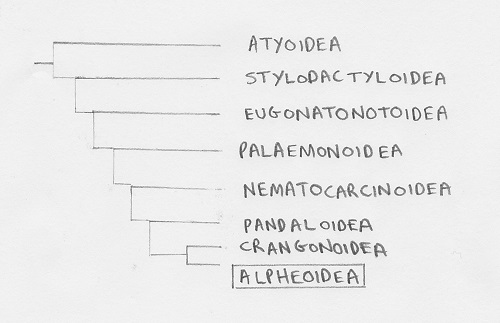 ATYOIDEA
STYLODACTYLOIDEA
EUGONATONOTOIDEA
PALAEMONOIDEA
NEMATOCARCINOIDEA
PANDALOIDEA
CRANGONOIDEA
ALPHEOIDEA